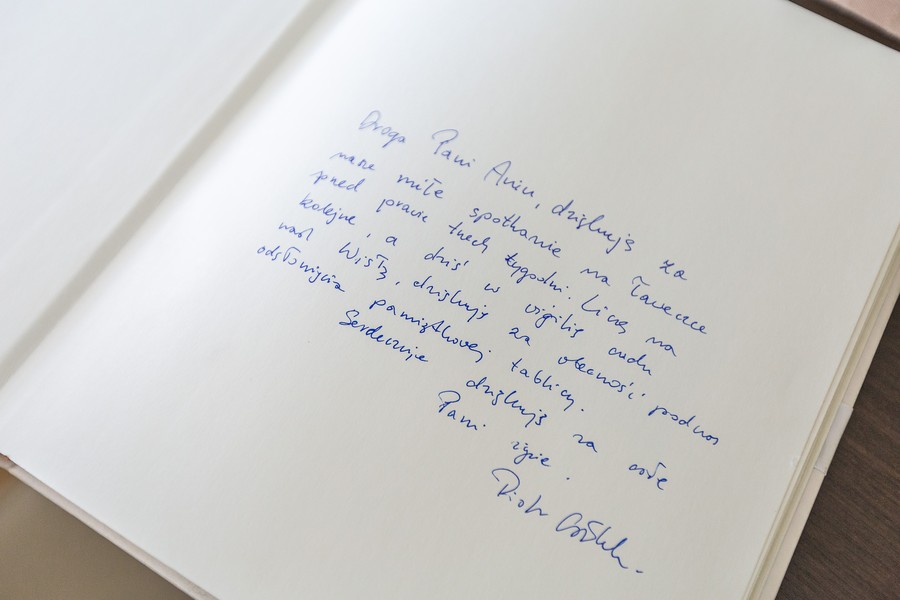 Droga Pani Aniu, dziękuję za
nasze miłe spotkanie na ławeczce
przed prawie trzech tygodni. Liczę na
kolejne, a dziś w wigilię cudu
nad Wisłą, dziękuję za obecność podczas
odsłonięcia pamiątkowej tablicy.
Serdecznie dziękuję za całe
Pani życie.
Piotr